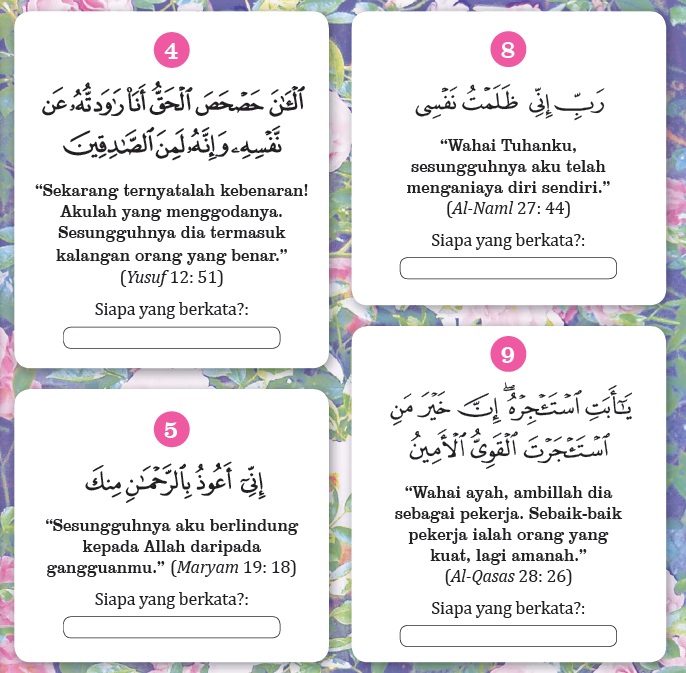 4
ٱلْـَٔـٰنَ حَصْحَصَ ٱلْحَقُّ أَنَا۠ رَٰوَدتُّهُۥ عَن
نَّفْسِهِۦ وَإِنَّهُۥ لَمِنَ ٱلصَّـٰدِقِينَ
“Sekarang ternyatalah kebenaran!
Akulah yang menggodanya.
Sesungguhnya dia termasuk
kalangan orang yang benar.”
(Yusuf 12: 51)
Siapa yang berkata?:
5
إِنِّىٓ أَعُوذُ بِٱلرَّحْمَـٰنِ مِنكَ
“Sesungguhnya aku berlindung
kepada Allah daripada
gangguanmu.” (Maryam 19: 18)
Siapa yang berkata?:
8
رَبِّ إِنِّى ظَلَمْتُ نَفْسِى
“Wahai Tuhanku,
sesungguhnya aku telah
menganiaya diri sendiri.”
(Al-Naml 27: 44)
Siapa yang berkata?:
9
يَـٰٓأَبَتِ ٱسْتَـْٔجِرْهُ ۖ إِنَّ خَيْرَ مَنِ
ٱسْتَـْٔجَرْتَ ٱلْقَوِىُّ ٱلْأَمِينُ
“Wahai ayah, ambillah dia
sebagai pekerja. Sebaik-baik
pekerja ialah orang yang
kuat, lagi amanah.”
(Al-Qasas 28: 26)
Siapa yang berkata?: